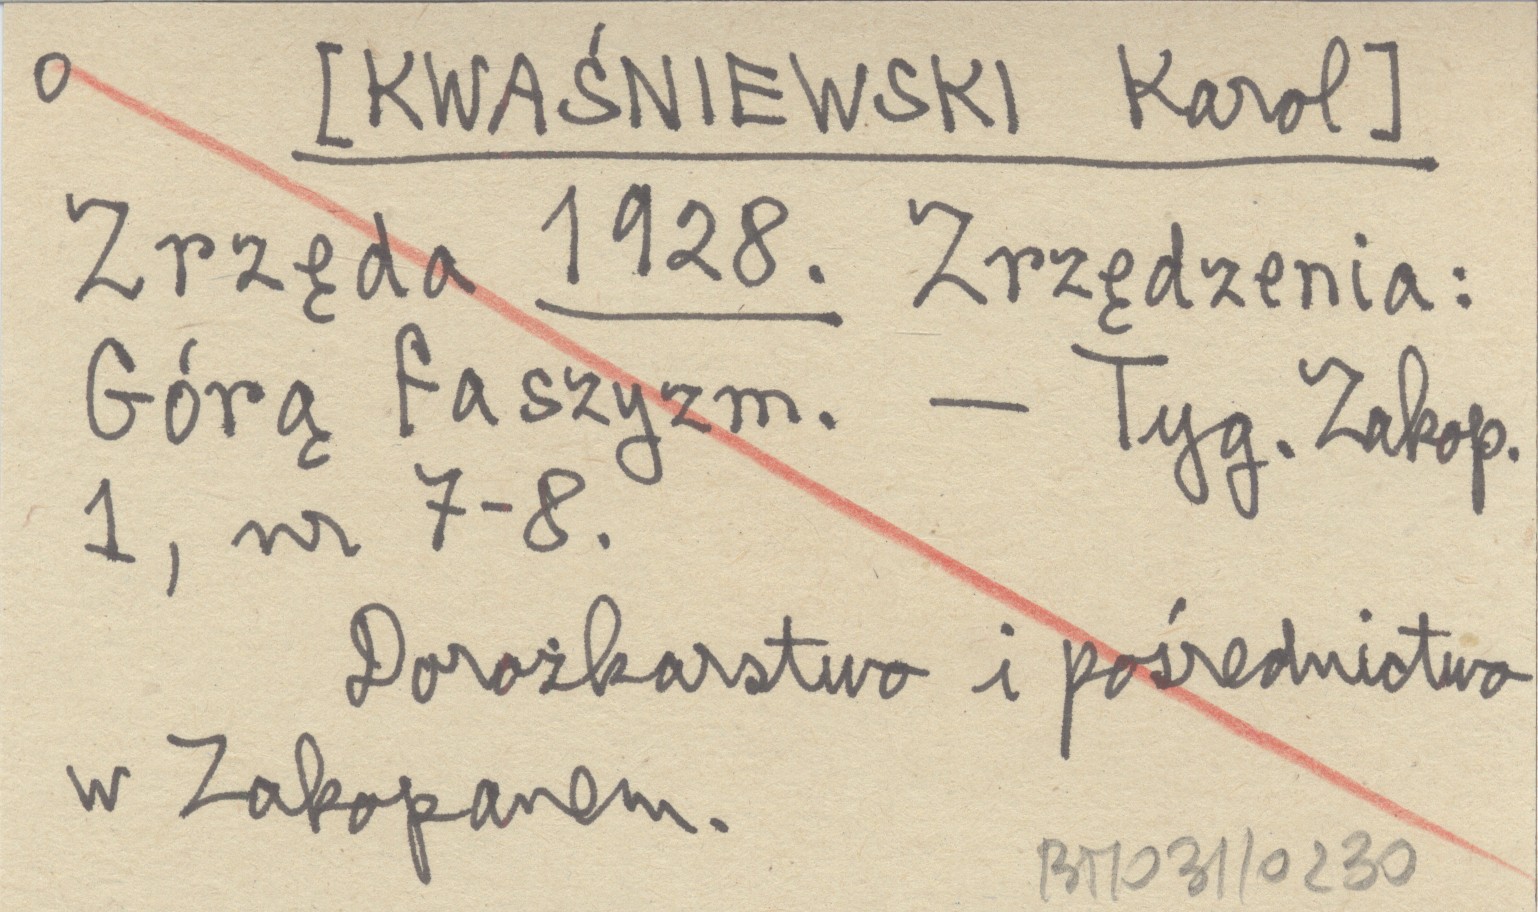 o [KWAŚNIEWSKI Karol]
Zrzęda 1928. Zrzędzenia:
Górą faszyzm. — Tyg. Zakop.
1, nr 7-8.
Dorożkarstwo i pośrednictwo
w Zakopanem.